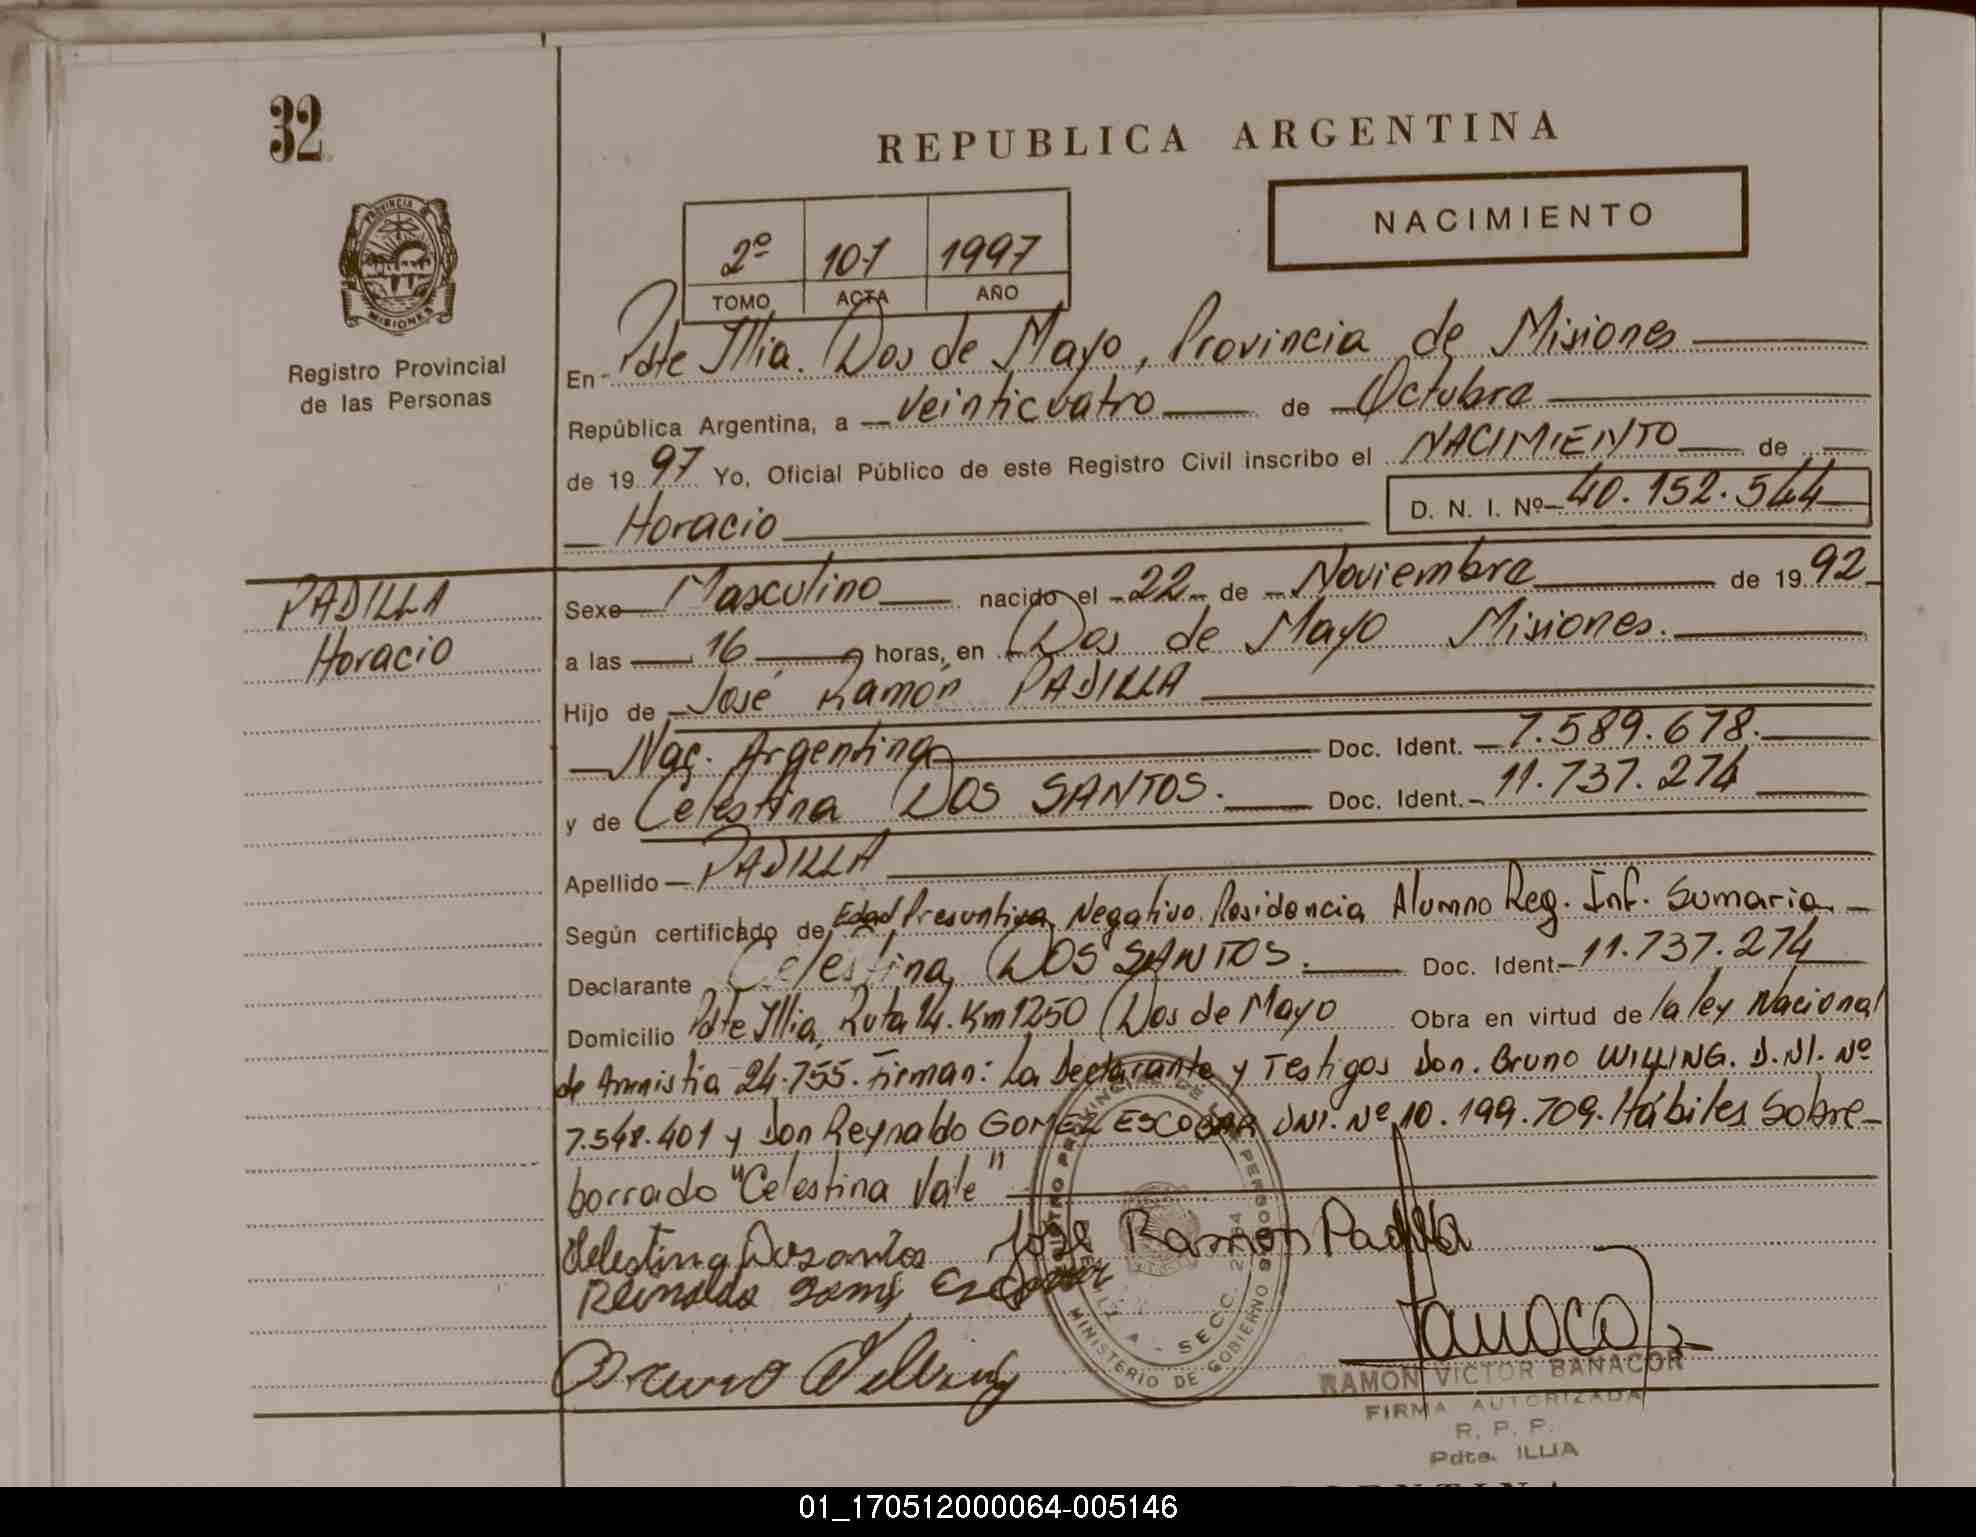 32
REPUBLICA ARGENTINA
PROVINCIA
MISIONES
NACIMIENTO
2º 107 1997
TOMO ACTA AÑO
Registro Provincial
de las Personas
En Pdte Illia. Dos de Mayo, Provincia de Misiones
República Argentina, a veinticuatro de Octubre
de 1997 Yo, Oficial Público de este Registro Civil inscribo el NACIMIENTO de
Horacio D. N. I. Nº 40.152.544
PADILLA
Horacio
Sexo Masculino nacido el 22 de Noviembre de 1992
a las 16 horas, en Dos de Mayo Misiones.
Hijo de José Ramón PADILLA
Nac. Argentina Doc. Ident. 7.589.678.
y de Celestina DOS SANTOS. Doc. Ident. 11.737.274
Apellido PADILLA
Según certificado de Edad Presuntiva Negativo. Residencia Alumno Reg. Inf. Sumaria
Declarante Celestina DOS SANTOS. Doc. Ident. 11.737.274
Domicilio Pdte Illia, Ruta 14. Km 1250 Dos de Mayo Obra en virtud de la ley Nacional
de Amnistia 24.755. Firman: La Declarante y Testigos Don. Bruno WILLING. D.N.I. Nº
7.548.401 y Don Reynaldo GOMEZ ESCOBAR DNI. Nº 10.199.709. Hábiles Sobre-
borrado "Celestina Vale"
Celestina Dosantos José Ramon Padilla
Reinaldo Gomes Escobar
Bruno Willing
MINISTERIO DE GOBIERNO
SECC.
RAMON VICTOR BANACOR
FIRMA AUTORIZADA
R. P. P.
Pdte. ILLIA
01_170512000064-005146